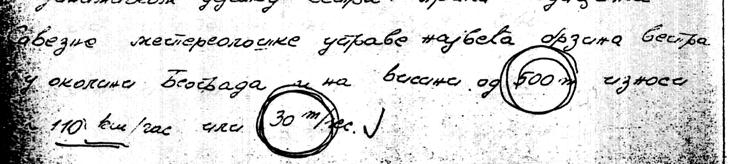 удару ветра
Савезне метереолошке управе највећа брзина ветра
у околини Београда и на висини од 500 m износи
110 km/час или 30 m/sec. ✓